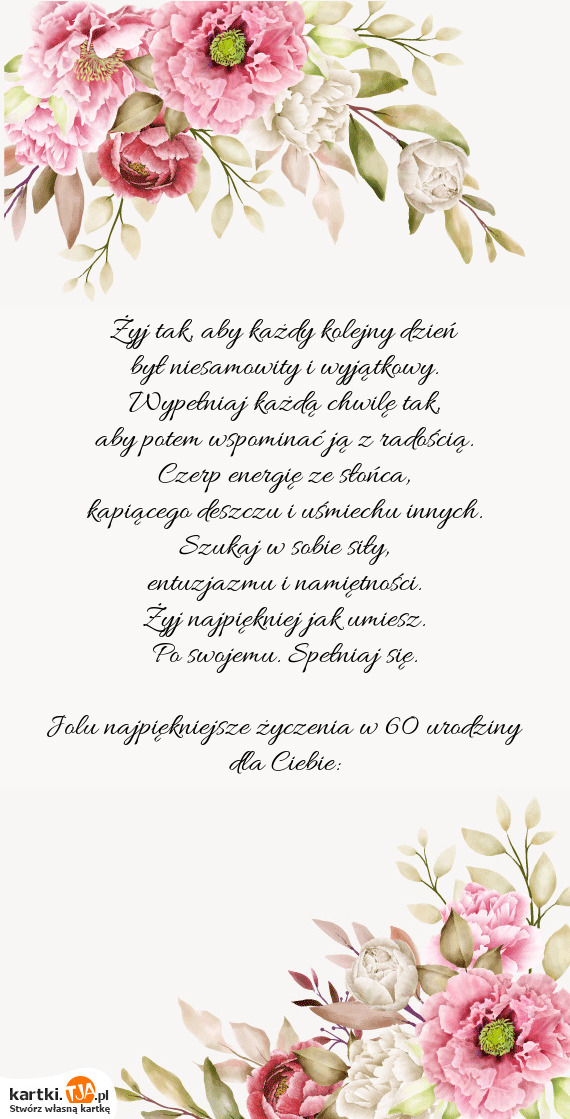 Żyj tak, aby każdy kolejny dzień
był niesamowity i wyjątkowy.
Wypełniaj każdą chwilę tak,
aby potem wspominać ją z radością.
Czerp energię ze słońca,
kapiącego deszczu i uśmiechu innych.
Szukaj w sobie siły,
entuzjazmu i namiętności.
Żyj najpiękniej jak umiesz.
Po swojemu. Spełniaj się.
Jolu najpiękniejsze życzenia w 60 urodziny
dla Ciebie:
kartki.TJA.pl
Stwórz własną kartkę